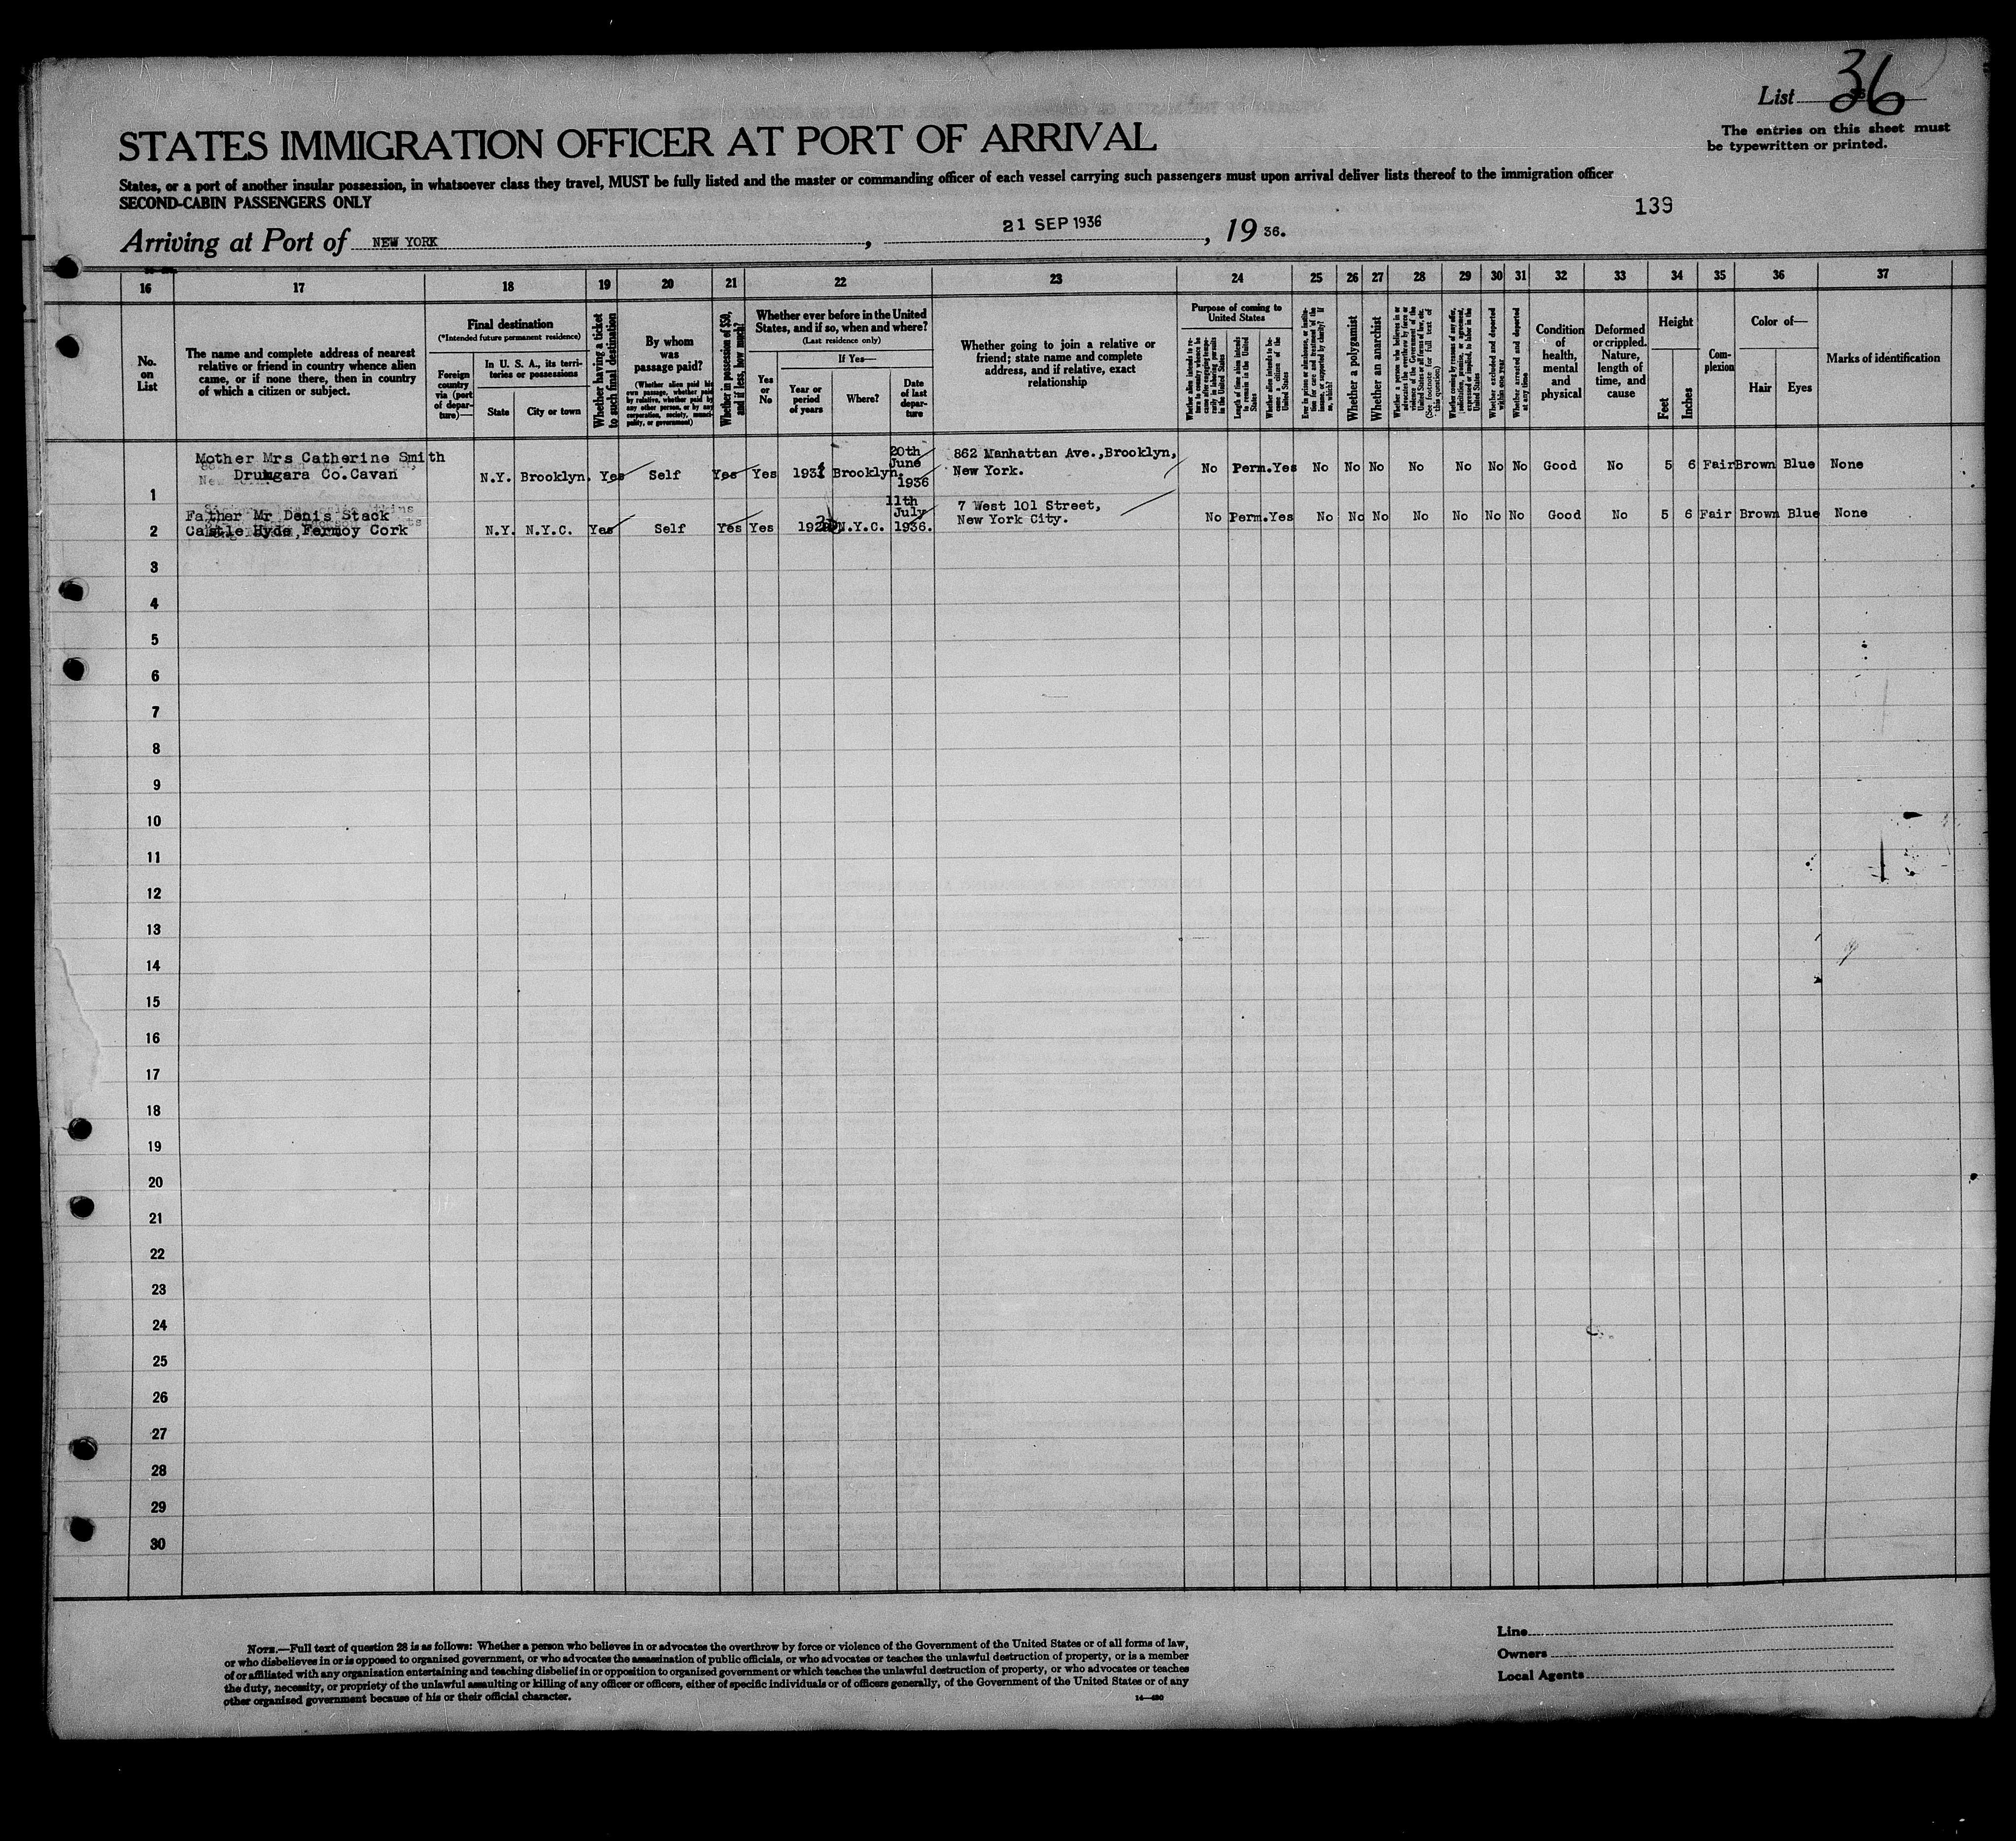 List 36
The entries on this sheet must
be typewritten or printed.
STATES IMMIGRATION OFFICER AT PORT OF ARRIVAL
States, or a port of another insular possession, in whatsoever class they travel, MUST be fully listed and the master or commanding officer of each vessel carrying such passengers must upon arrival deliver lists thereof to the immigration officer
SECOND-CABIN PASSENGERS ONLY
139
Arriving at Port of NEW YORK, 21 SEP 1936, 19 36.
16 17 18 19 20 21 22 23 24 25 26 27 28 29 30 31 32 33 34 35 36 37
No.
on
List
The name and complete address of nearest
relative or friend in country whence alien
came, or if none there, then in country
of which a citizen or subject.
Final destination
(*Intended future permanent residence)
Foreign
country
via (port
of depar-
ture)—
In U. S. A., its terri-
tories or possessions
State
City or town
Whether having a ticket
to such final destination
By whom
was
passage paid?
(Whether alien paid his
own passage, whether paid
by relative, whether paid by
any other person, or by any
corporation, society, munici-
pality, or government)
Whether in possession of $50,
and if less, how much?
Whether ever before in the United
States, and if so, when and where?
(Last residence only)
Yes
or
No
If Yes—
Year or
period
of years
Where?
Date
of last
depar-
ture
Whether going to join a relative or
friend; state name and complete
address, and if relative, exact
relationship
Purpose of coming to
United States
Whether alien intends to re-
turn to country whence he
came after engaging tempo-
rarily in laboring pursuits
in the United States
Length of time alien intends
to remain in the United
States
Whether alien intends to be-
come a citizen of the
United States
Ever in prison or almshouse, or institu-
tion for care and treatment of the
insane, or supported by charity? If
so, which?
Whether a polygamist
Whether an anarchist
Whether a person who believes in or
advocates the overthrow by force or
violence of the Government of the
United States or all forms of law, etc.
(See footnote for full text of
this question)
Whether coming by reason of any offer,
solicitation, promise, or agreement,
expressed or implied, to labor in the
United States
Whether excluded and deported
within one year
Whether arrested and deported
at any time
Condition
of
health,
mental
and
physical
Deformed
or crippled.
Nature,
length of
time, and
cause
Height
Feet
Inches
Com-
plexion
Color of—
Hair
Eyes
Marks of identification
Mother Mrs Catherine Smith
Drumgara Co.Cavan
1 N.Y. Brooklyn. Yes Self Yes Yes 1931 Brooklyn, 20th
June
1936
862 Manhattan Ave.,Brooklyn,
New York.
No Perm. Yes No No No No No No No Good No 5 6 Fair Brown Blue None
Father Mr Denis Stack
Castle Hyde, Fermoy Cork
2 N.Y. N.Y.C. Yes Self Yes Yes N.Y.C. 11th
July
1936.
7 West 101 Street,
New York City.
No Perm. Yes No No No No No No No Good No 5 6 Fair Brown Blue None
3
4
5
6
7
8
9
10
11
12
13
14
15
16
17
18
19
20
21
22
23
24
25
26
27
28
29
30
NOTE.—Full text of question 28 is as follows: Whether a person who believes in or advocates the overthrow by force or violence of the Government of the United States or of all forms of law,
or who disbelieves in or is opposed to organized government, or who advocates the assassination of public officials, or who advocates or teaches the unlawful destruction of property, or is a member
of or affiliated with any organization entertaining and teaching disbelief in or opposition to organized government or which teaches the unlawful destruction of property, or who advocates or teaches
the duty, necessity, or propriety of the unlawful assaulting or killing of any officer or officers, either of specific individuals or of officers generally, of the Government of the United States or of any
other organized government because of his or their official character.
14—430
Line
Owners
Local Agents